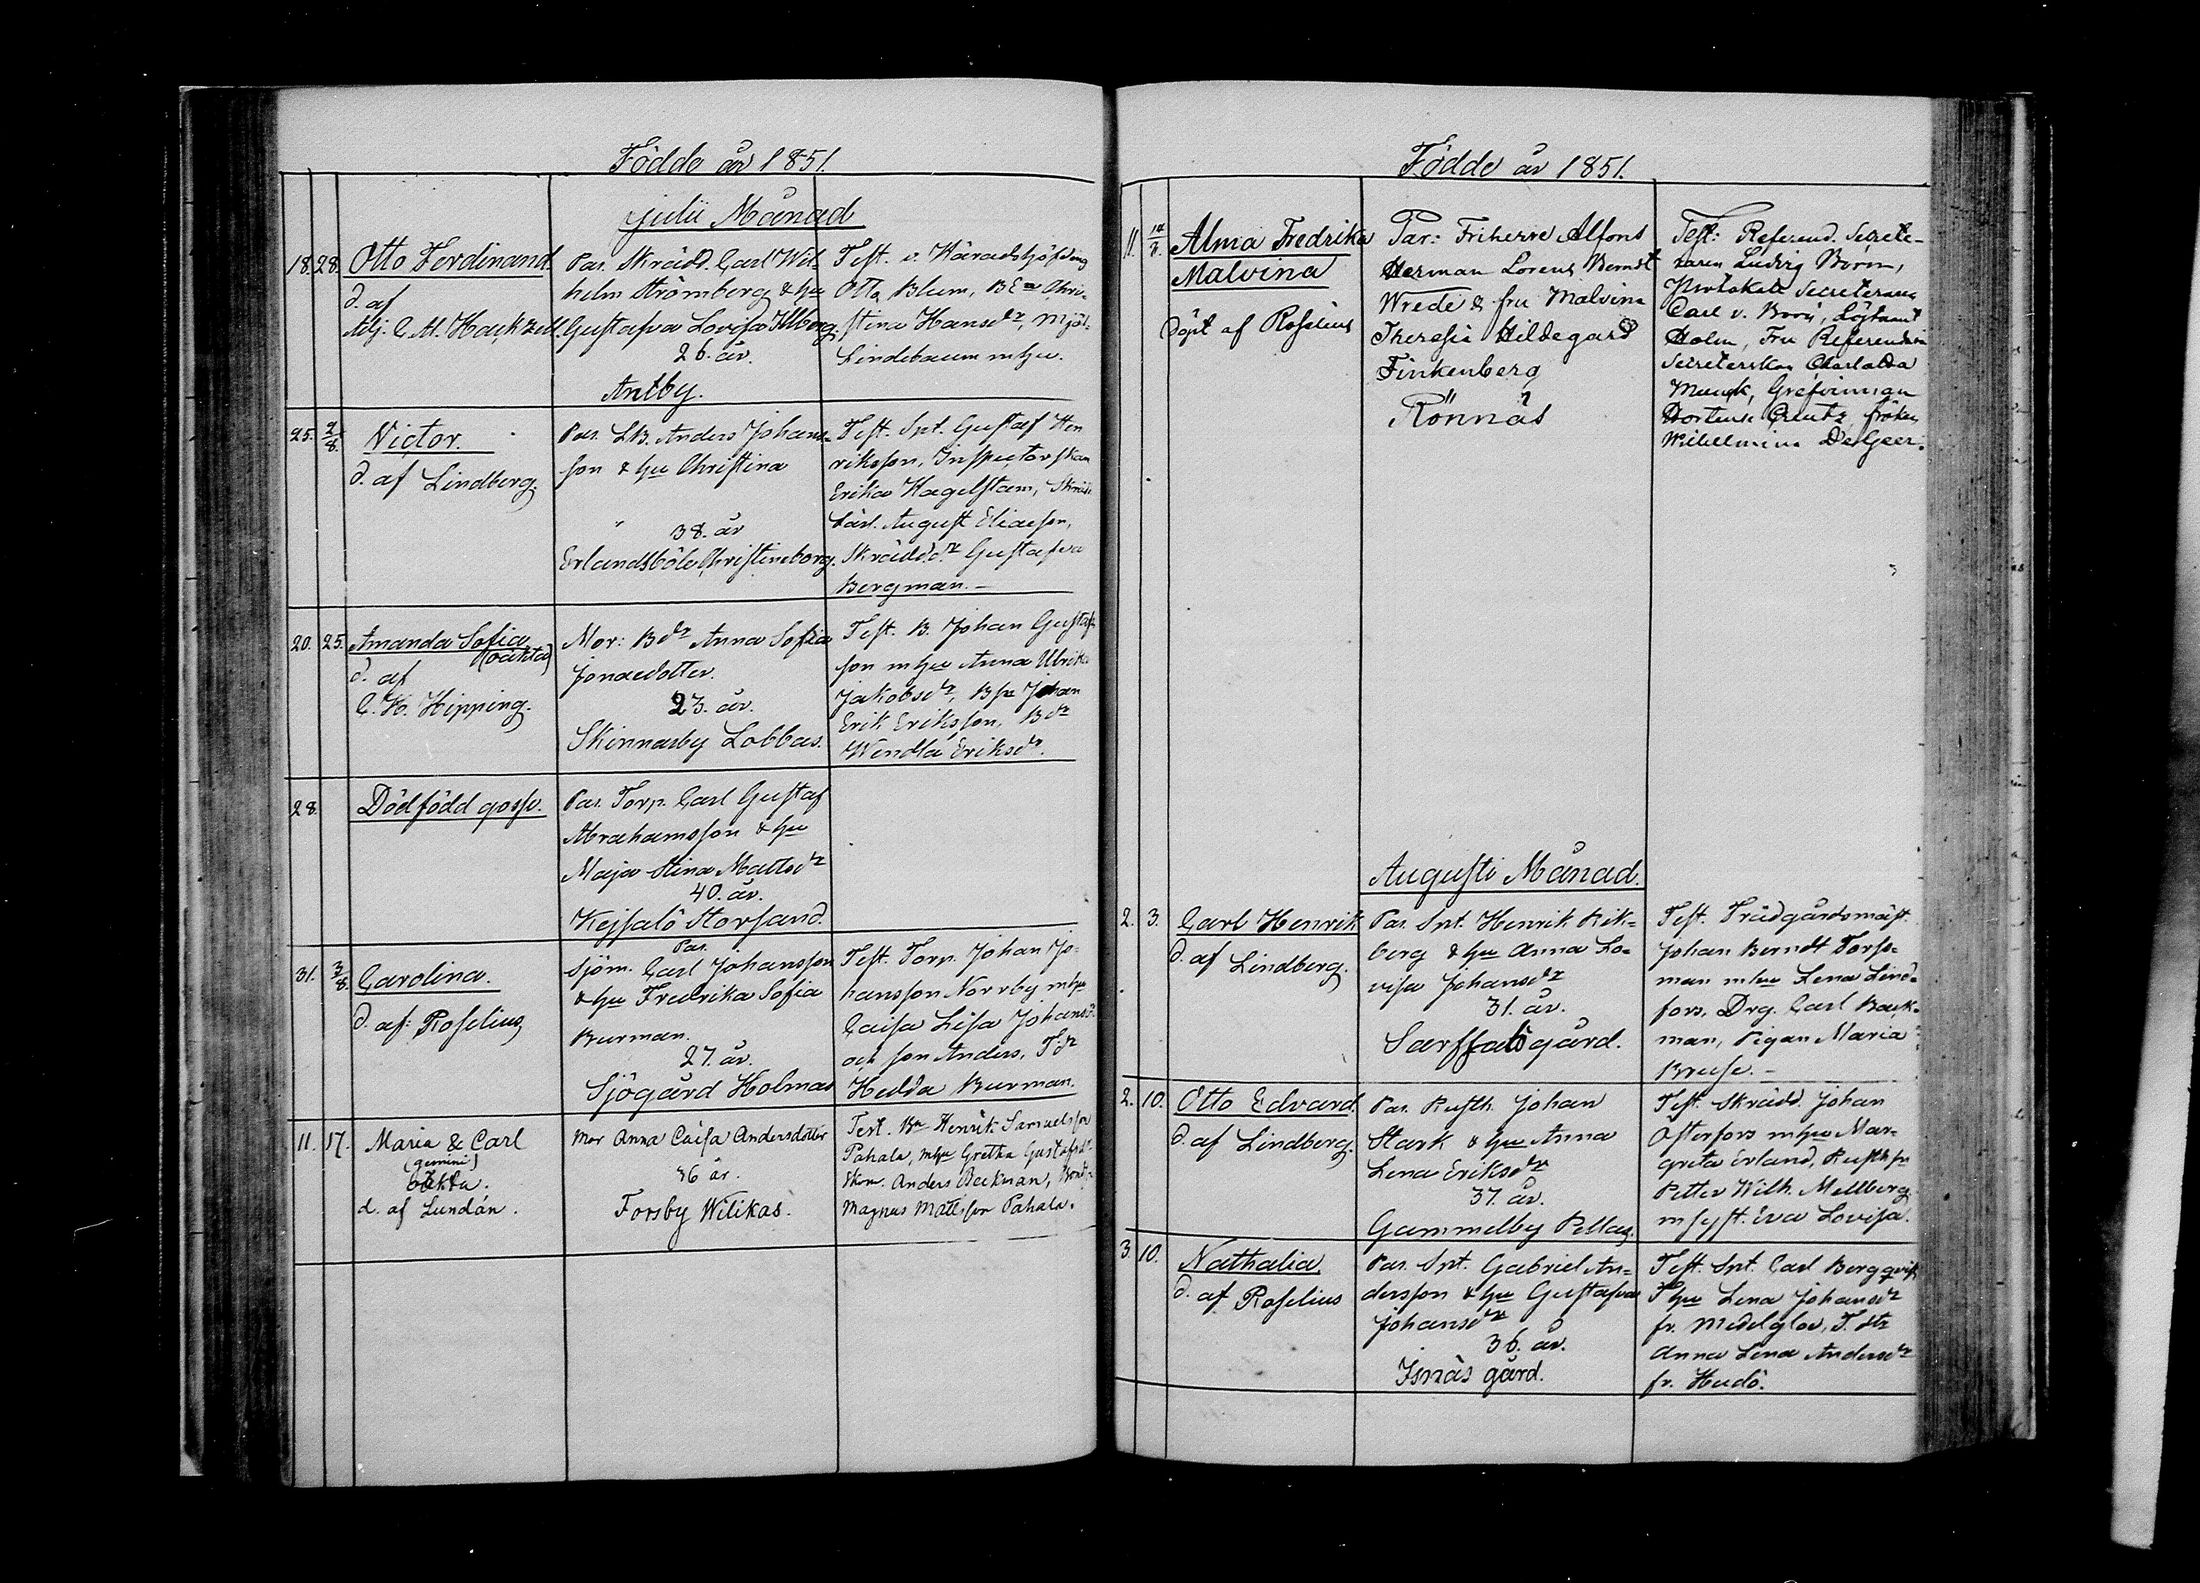 Födde år 1851.
Julii Månad
18. 28. Otto Ferdinand.
d. af
Par. Skrädd. Carl Wil-
helm Strömberg & hu
Gustafva Lovisa
26. år.
Antby.
Test. v. Häradshöfding
Otto Blum, Chri-
stina Hansdr, Mjöl.
Lindebaum mhu.
25. 2/8 Victor.
d. af Lindberg.
Par. Anders Johans-
son & hu Christina
38. år
Erlandsböle Christineborg.
Test. Spt. Gustaf Hen
riksson, Inspectorskan
Erika Hagelstam, Skrädd.
lärl. August Eliasson,
Skrädd.dr Gustafva
Bergman.
20. 25. Amanda Sofia
(oäkta)
d. af
C. H. Hipping.
Mor: Bdr Anna Sofia
Jonaedotter.
23. år.
Skinnarby Lobbas.
Test. B. Johan Gustafs
son mhu Anna Ulrika
Jakobsdr, Johan
Erik Eriksson, Bdr
Wendla Eriksdr.
28. Dödfödd gosse.
Par. Torp. Carl Gustaf
Abrahamsson & hu
Maja Stina Mattsdr
40. år.
Kejsalö Storsand.
31. 3/8. Carolina.
d. af: Roselius
Par.
Sjöm. Carl Johansson
& hu Fredrika Sofia
Burman.
27. år.
Sjögård Holmas
Test. Torp. Johan Jo-
hansson Norrby mhu
Caisa Lisa Johansd.
och son Anders, Tdr
Hedda Burman.
11. 17. Maria & Carl
(gemini)
oäkta.
d. af Lundán.
Mor Anna Caisa Andersdotter
36 år.
Forsby Wilikas.
Test. Bn Henrik Samuelsson
Pahala, mhu Gretha Gustafsd.
Anders Beckman,
Magnus Mattsson Pahala.
Födde år 1851.
11. Alma Fredrika
Malvina
Döpt af Roselius
Par: Friherre Alfons
Herman Lorens Berndt
Wrede & fru Malvina
Theresia Hildegard
Finkenberg
Rönnäs
Test: Referend. Secrete-
raren Ludvig Born,
Protokoll Secreteraren
Carl v. Born, Löjtnant
Holm, Fru Referendarie
Secreterskan Charlotta
Munck, Grefvinnan
Hortense Creutz, fröken
Wilhelmina De Geer.
Augusti Månad.
2. 3. Carl Henrik
d. af Lindberg.
Par. Spt. Henrik Rik-
berg & hu Anna Lo-
visa Johansdr
31. år.
Sarfsalö gård.
Test. Trädgårdsmäst.
Johan Berndt Torss-
man mhu Lena Lind-
fors, Drg. Carl Back-
man, Pigan Maria
Bruse.
2. 10. Otto Edvard.
d. af Lindberg.
Par. Rusth. Johan
Stark & hu Anna
Lena Eriksdr
37. år.
Gammelby Pellas.
Test. Skrädd. Johan
Österfors mhu Mar-
greta Erland, Rusth.
Petter Wilh. Mellberg
m syst. Eva Lovisa.
3. 10. Nathalia.
d. af Roselius
Par. Spt. Gabriel An-
dersson & hu Gustafva
Johansdr
36. år.
Isnäs gård.
Test. Spt. Carl Bergqvist
hu Lena Johansdr
fr. T. dtr
Anna Lena Andersdr
fr. Hudö.